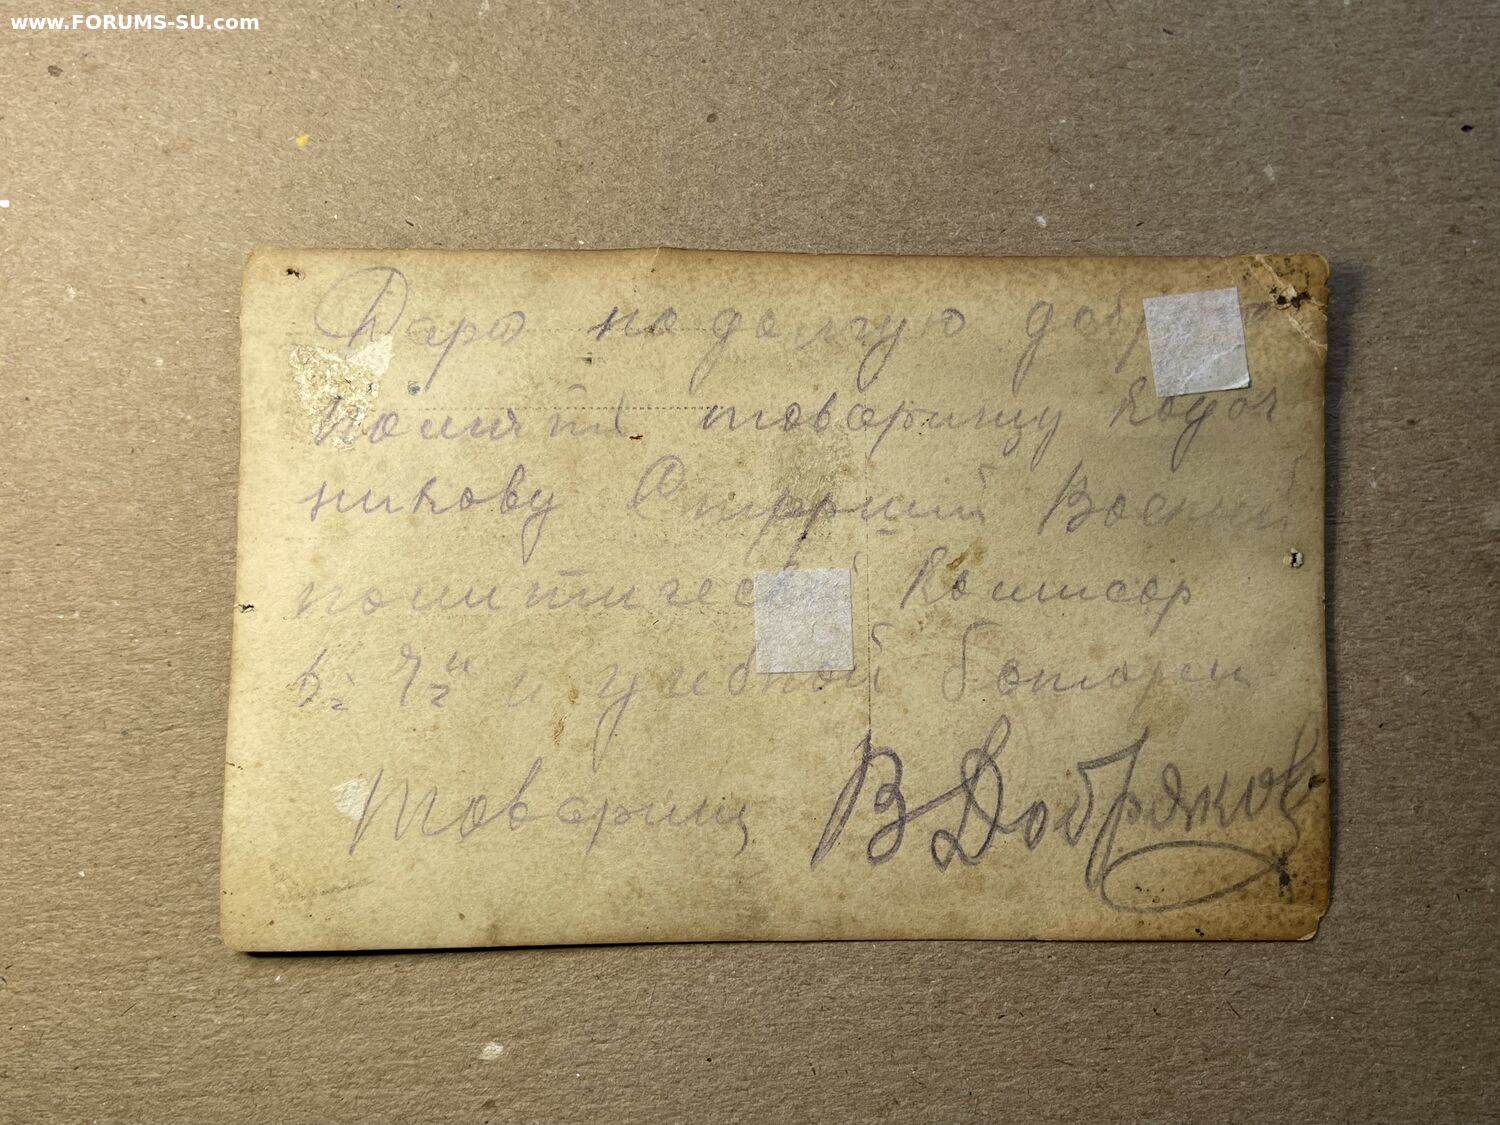 www.FORUMS-SU.com
Дарю на долгую
помяти товарищу Кодоч
никову Старший Военый
политический Комисар
и учебной батареи
Товарищ В Добряков